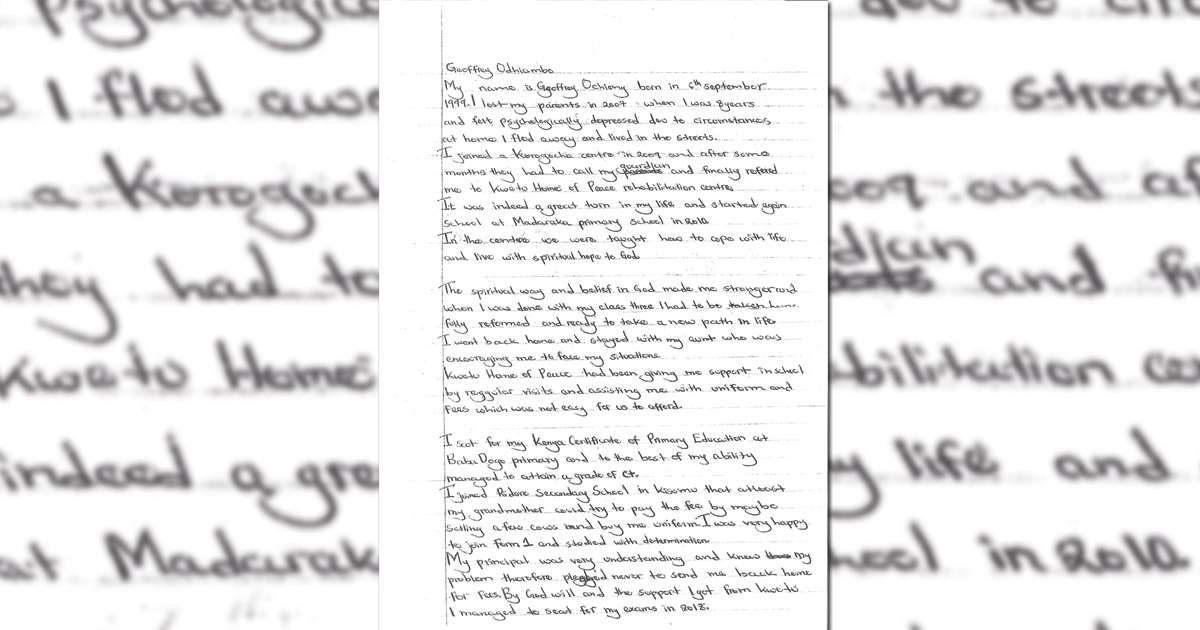 Geoffrey Odhiambo
My name is Geoffrey Ochieng born in 6th september
1999. I lost my parents in 2007 . when I was 8years
and felt psychologically depressed deo to circumstances
at home I fled away and lived in the streets.
I joined a Korogocho centre in 2009 and after some
months they had to call my guardian and finally refered
me to Kweto Home of Peace rehabilitation centre,
It was indeed a great turn in my life and started again
School at Madaraka primary school in 2010.
In the centre we were taught how to cope with life
and live with spiritual hope to God.
The spiritual way and belief in God made me stronger and
when I was done with my class three I had to be taken home
fully reformed and ready to take a new path in life
I went back home and stayed with my aunt who was
encouraging me to face my situations.
Kweto Home of Peace had been giving me support in school
by reggular visits and assisting me with uniform and
fees which was not easy for us to afford.
I sat for my Kenya Certificate of Primary Education at
Baba Dogo primary and to the best of my ability
managed to attain a grade of C+.
I joined Secondary School in Kisumu that atleast
my grandmother could try to pay the fee by maybe
selling a few cows and buy me uniform. I was very happy
to join form 1 and studied with determination
My principal was very understanding and knew my
problem therefore pledged never to send me back home
for fees. By God will and the support I got from kweto
I managed to seat for my exams in 2018.